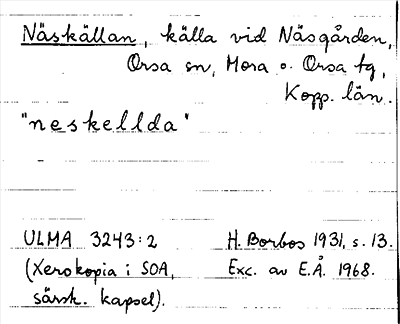 Näskällan, källa vid Näsgården,
Orsa sn, Mora o. Orsa tg,
Kopp. län.
"neskellda"
ULMA 3243:2 H. Borbos 1931, s. 13.
(Xerokopia i SOA, Exc. av E.Å. 1968.
särsk. kapsel).